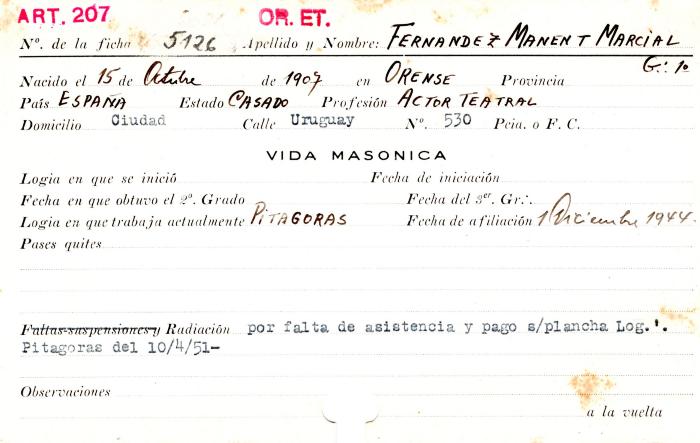 ART. 207 OR. ET.
Nº. de la ficha 5126 Apellido y Nombre: FERNANDEZ MANENT MARCIAL
G∴ 1º
Nacido el 15 de Octubre de 1907 en ORENSE Provincia
País ESPAÑA Estado CASADO Profesión ACTOR TEATRAL
Domicilio Ciudad Calle Uruguay Nº. 530 Pcia. o F. C.
VIDA MASONICA
Logia en que se inició Fecha de iniciación
Fecha en que obtuvo el 2º. Grado Fecha del 3er. Gr∴
Logia en que trabaja actualmente PITAGORAS Fecha de afiliación 1 Diciembre 1944.
Pases quites
Faltas-suspensiones-y Radiación por falta de asistencia y pago s/plancha Log.'.
Pitagoras del 10/4/51-
Observaciones
a la vuelta